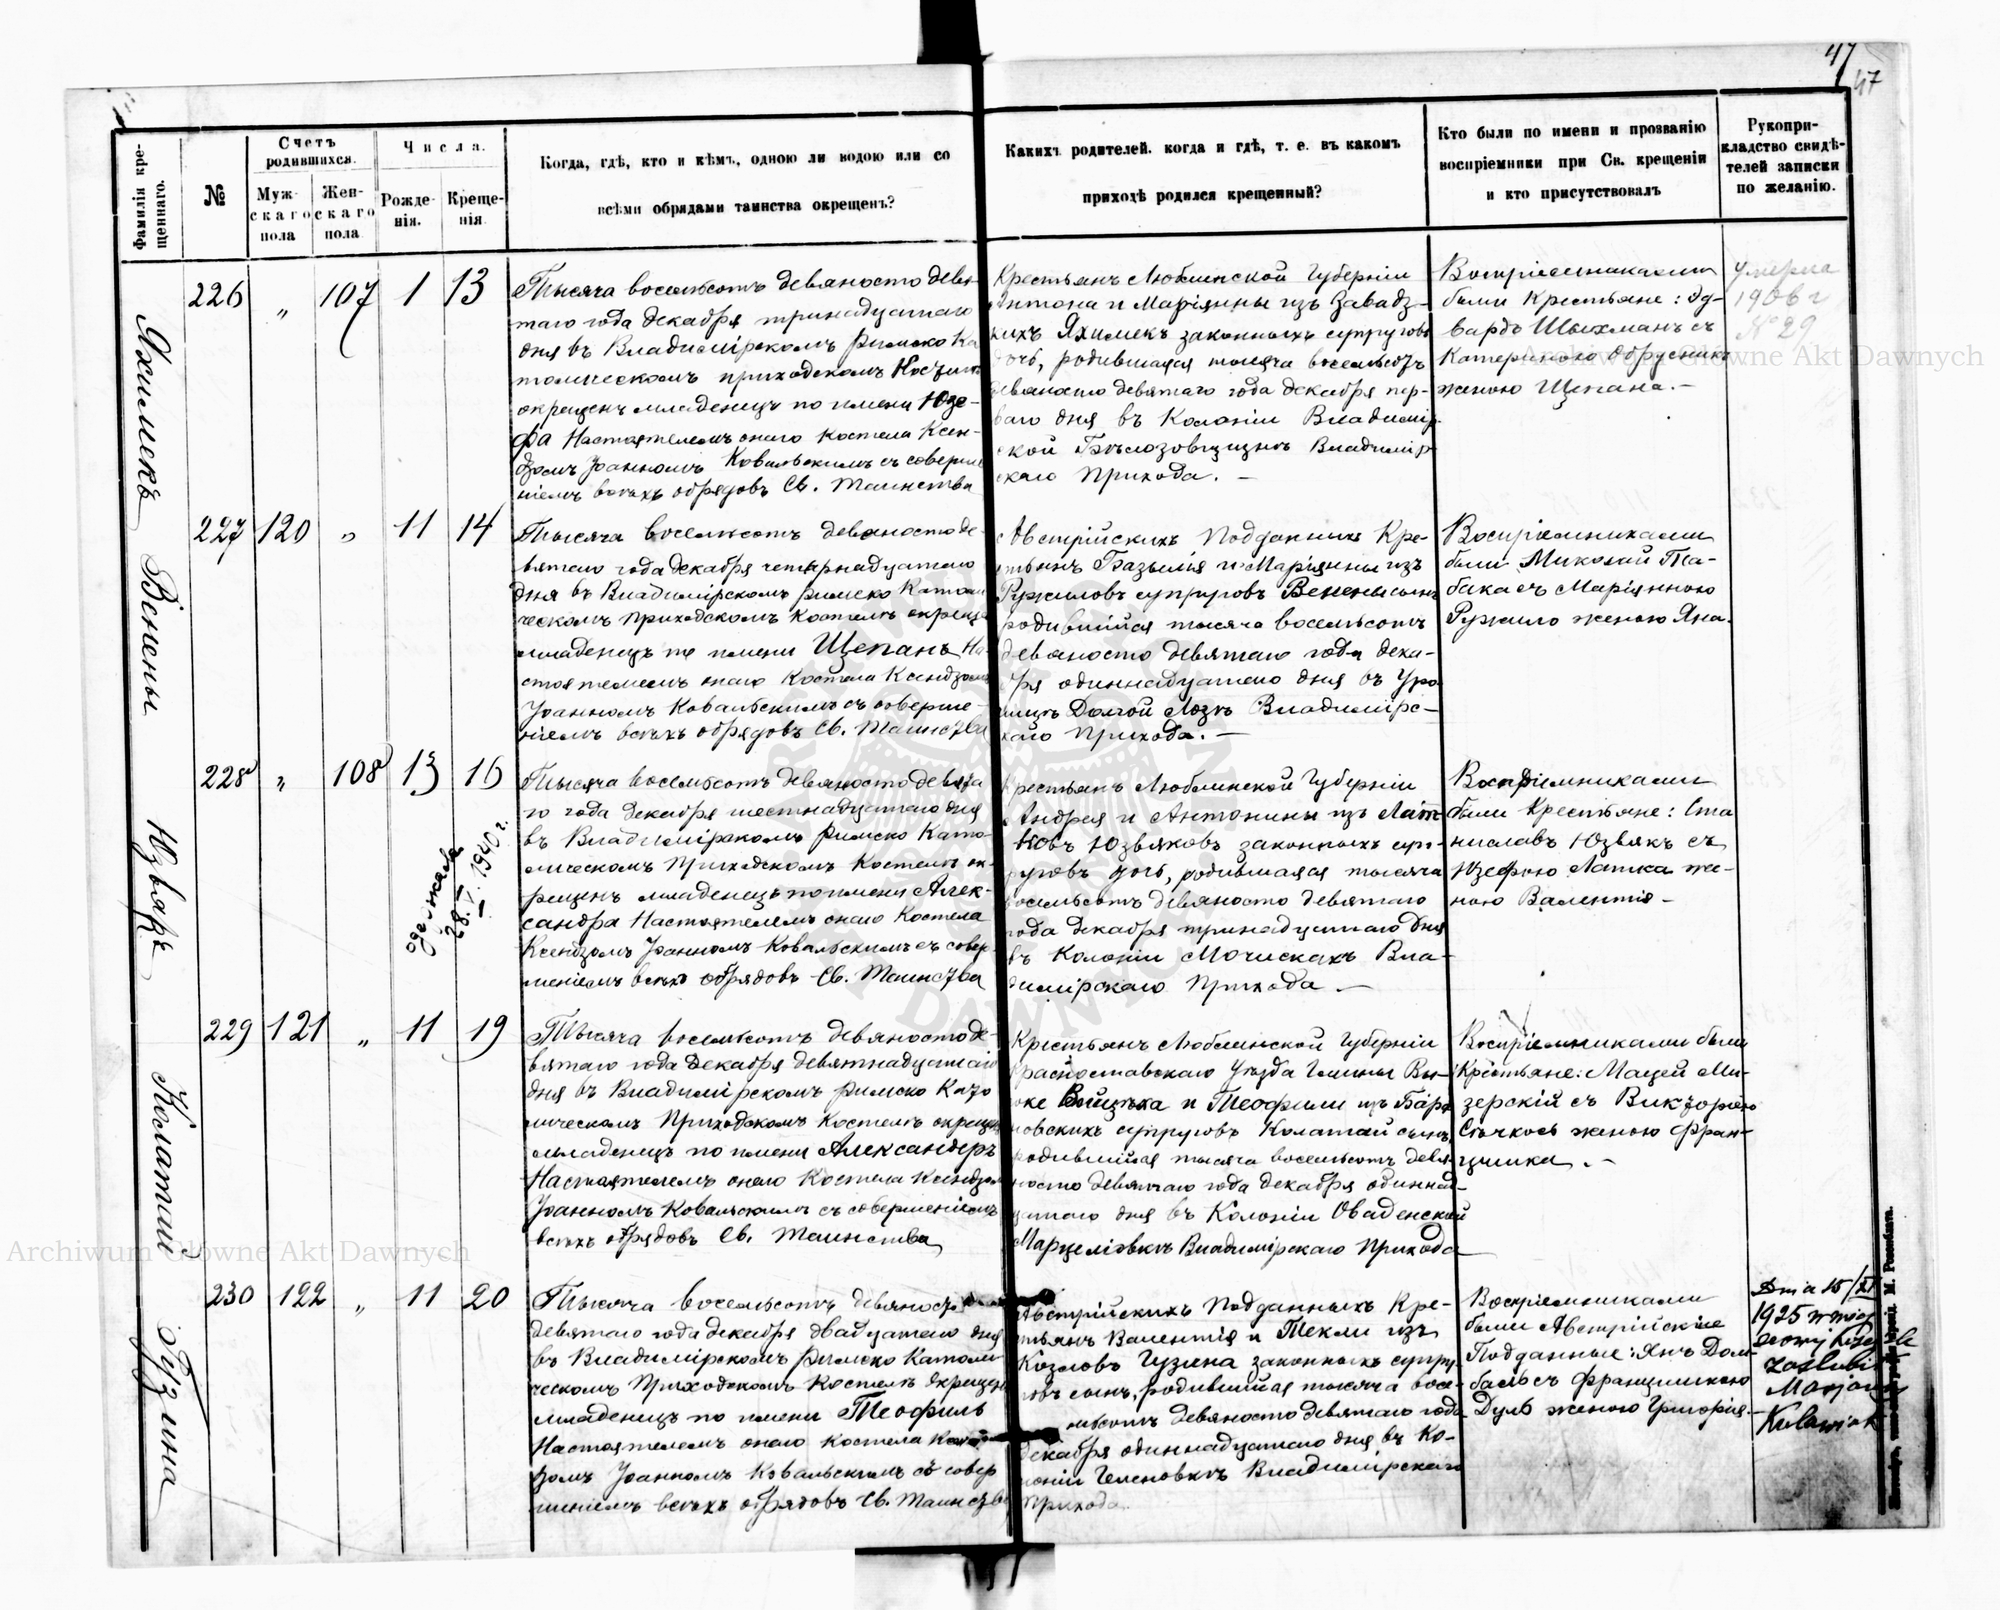 47
47
Фамилія кре-
щеннаго.
№
Счетъ
родившихся.
Муж-
скаго
пола
Жен-
скаго
пола
Числа.
Рожде-
нія.
Креще-
нія
Когда, гдѣ, кто и кѣмъ, одною ли водою или со
всѣми обрядами таинства окрещенъ?
Какихъ родителей, когда и гдѣ, т. е. въ какомъ
приходѣ родился крещенный?
Кто были по имени и прозванію
воспріемники при Св. крещеніи
и кто присутствовалъ
Рукопри-
кладство свидѣ-
телей записки
по желанію.
Яхимекъ
226 „ 107 1 13
Тысяча восемьсотъ девяносто девя-
таго года декабря тринадцатаго
дня въ Владимірскомъ Римско Ка
толическомъ приходскомъ Костелѣ
окрещенъ младенецъ по имени Юзе-
фа Настоятелемъ онаго Костела Ксен-
дзомъ Іоанномъ Ковальскимъ съ соверше
ніемъ всѣхъ обрядовъ Св. Таинства
Крестьянъ Люблинской Губерніи
Антона и Маріянны изъ Завадз-
кихъ Яхимекъ законныхъ супруговъ
дочь, родившаяся тысяча восемьсотъ
девяносто девятаго года декабря пер-
ваго дня въ Колоніи Владимір-
ской Бѣлозовщизнѣ Владимір
скаго Прихода. –
Воспріемниками
были Крестьяне: Эд-
вардъ Шыхманъ съ
Катериною Обрусникъ
женою Щепана. –
умерла
1906 г
№ 29
Archiwum Główne Akt Dawnych
Венены
227 120 „ 11 14
Тысяча восемьсотъ девяносто де-
вятаго года декабря четырнадцатаго
дня въ Владимірскомъ Римско Катол
ческомъ Приходскомъ Костелѣ окреще
младенецъ по имени Щепанъ На-
стоятелемъ онаго Костела Ксендзомъ
Іоанномъ Ковальскимъ съ соверше-
ніемъ всѣхъ обрядовъ Св. Таинства
Австрійскихъ Подданныхъ Кре-
стьянъ Базылія и Маріянны изъ
Ружиловъ супруговъ Венены сынъ
родившійся тысяча восемьсотъ
девяносто девятаго года дека-
бря одиннадцатаго дня въ Уро
чищѣ Долгой Лозѣ Владимірс-
каго Прихода. –
Воспріемниками
были Миколай Та-
бака съ Маріянною
Ружило женою Яна.
Юзвякъ
228 „ 108 13 16
одержала
28.V.1940 г.
Тысяча восемьсотъ девяносто девята
го года декабря шестнадцатаго дня
въ Владимірскомъ Римско Като-
лическомъ Приходскомъ Костелѣ ок-
рещенъ младенецъ по имени Алек-
сандра Настоятелемъ онаго Костела
Ксендзомъ Іоанномъ Ковальскимъ съ совер-
шеніемъ всѣхъ обрядовъ Св. Таинства
Крестьянъ Люблинской Губерніи
Андрея и Антонины изъ Лат
ковъ Юзвяковъ законныхъ суп-
руговъ дочь, родившаяся тысяча
восемьсотъ девяносто девятаго
года декабря тринадцатаго дня
въ Колоніи Мочискахъ Вла-
димірскаго Прихода. –
Воспріемниками
были Крестьяне: Ста
ниславъ Юзвякъ съ
Юзефою Латка же-
ною Валентія –
Колатай
229 121 „ 11 19
Тысяча восемьсотъ девяносто де-
вятаго года декабря девятнадцатаго
дня въ Владимірскомъ Римско Като
лическомъ Приходскомъ Костелѣ окрещен
младенецъ по имени Александеръ
Настоятелемъ онаго Костела Ксендзом
Іоанномъ Ковальскимъ съ совершеніемъ
всѣхъ обрядовъ Св. Таинства
Крестьянъ Люблинской Губерніи
Красноставскаго Уѣзда Гмины Вы-
соке Войцѣха и Теофили изъ Бара
новскихъ супруговъ Колатай сынъ,
родившійся тысяча восемьсотъ девя-
носто девятаго года декабря одиннад-
цатаго дня въ Колоніи Оваденской
Марцелювкѣ Владимірскаго Прихода
Воспріемниками были
Крестьяне: Мацей Ми-
зерскій съ Викторіею
женою Фран-
цишка. –
Archiwum Główne Akt Dawnych
Гузина
230 122 „ 11 20
Тысяча восемьсотъ девяносто
девятаго года декабря двадцатаго дня
въ Владимірскомъ Римско Католи
ческомъ Приходскомъ Костелѣ окрещен
младенецъ по имени Теофиль
Настоятелемъ онаго Костела Ксен
дзомъ Іоанномъ Ковальскимъ съ совер
шеніемъ всѣхъ обрядовъ Св. Таинства
Австрійскихъ Подданныхъ Кре-
стьянъ Валентія и Текли изъ
Козловъ Гузина законныхъ супру-
говъ сынъ, родившійся тысяча восе-
мьсотъ девяносто девятаго года
декабря одиннадцатаго дня въ Ко-
лоніи Геленовкѣ Владимірскаго
Прихода.
Воспріемниками
были Австрійскіе
Подданные: Янъ Дом-
бало съ Францишкою
Дуль женою Григорія. –
Dnia 15/XI
1925 w
zaślubił
Marjan
Kulawiak